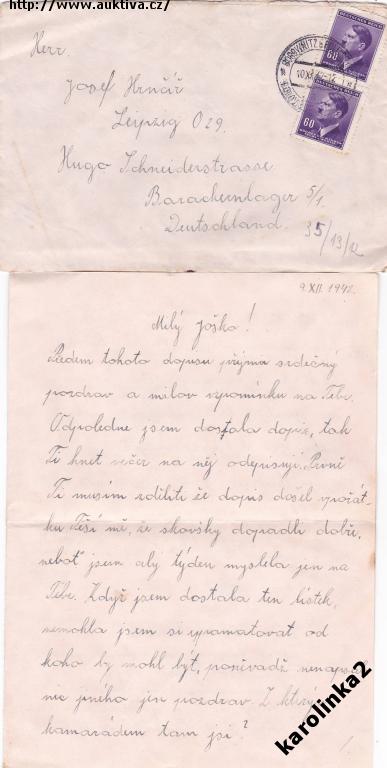 http://www.auktiva.cz/
Herr
Josef Hrnčíř
Leipzig O 29.
Hugo Schneiderstrasse
Barackenlager 5/1.
Deutschland.
35/13/12
60
60
9.XII.1942.
Milý Joško!
Předem tohoto dopisu přijma srdečný
pozdrav a milou vzpomínku na Tebe.
Odpoledne jsem dostala dopis, tak
Ti hned večer na něj odepisuji. Prvně
Ti musím sděliti že dopis došel v pořát-
ku Těší mě, že skoušky dopadli dobře,
neboť jsem celý týden myslela jen na
Tebe. Když jsem dostala ten lístek,
nemohla jsem si vpamatovat od
koho by mohl být, poněvadž
nic jiného jen pozdrav. Z
kamarádem tam jsi?
karolinka2